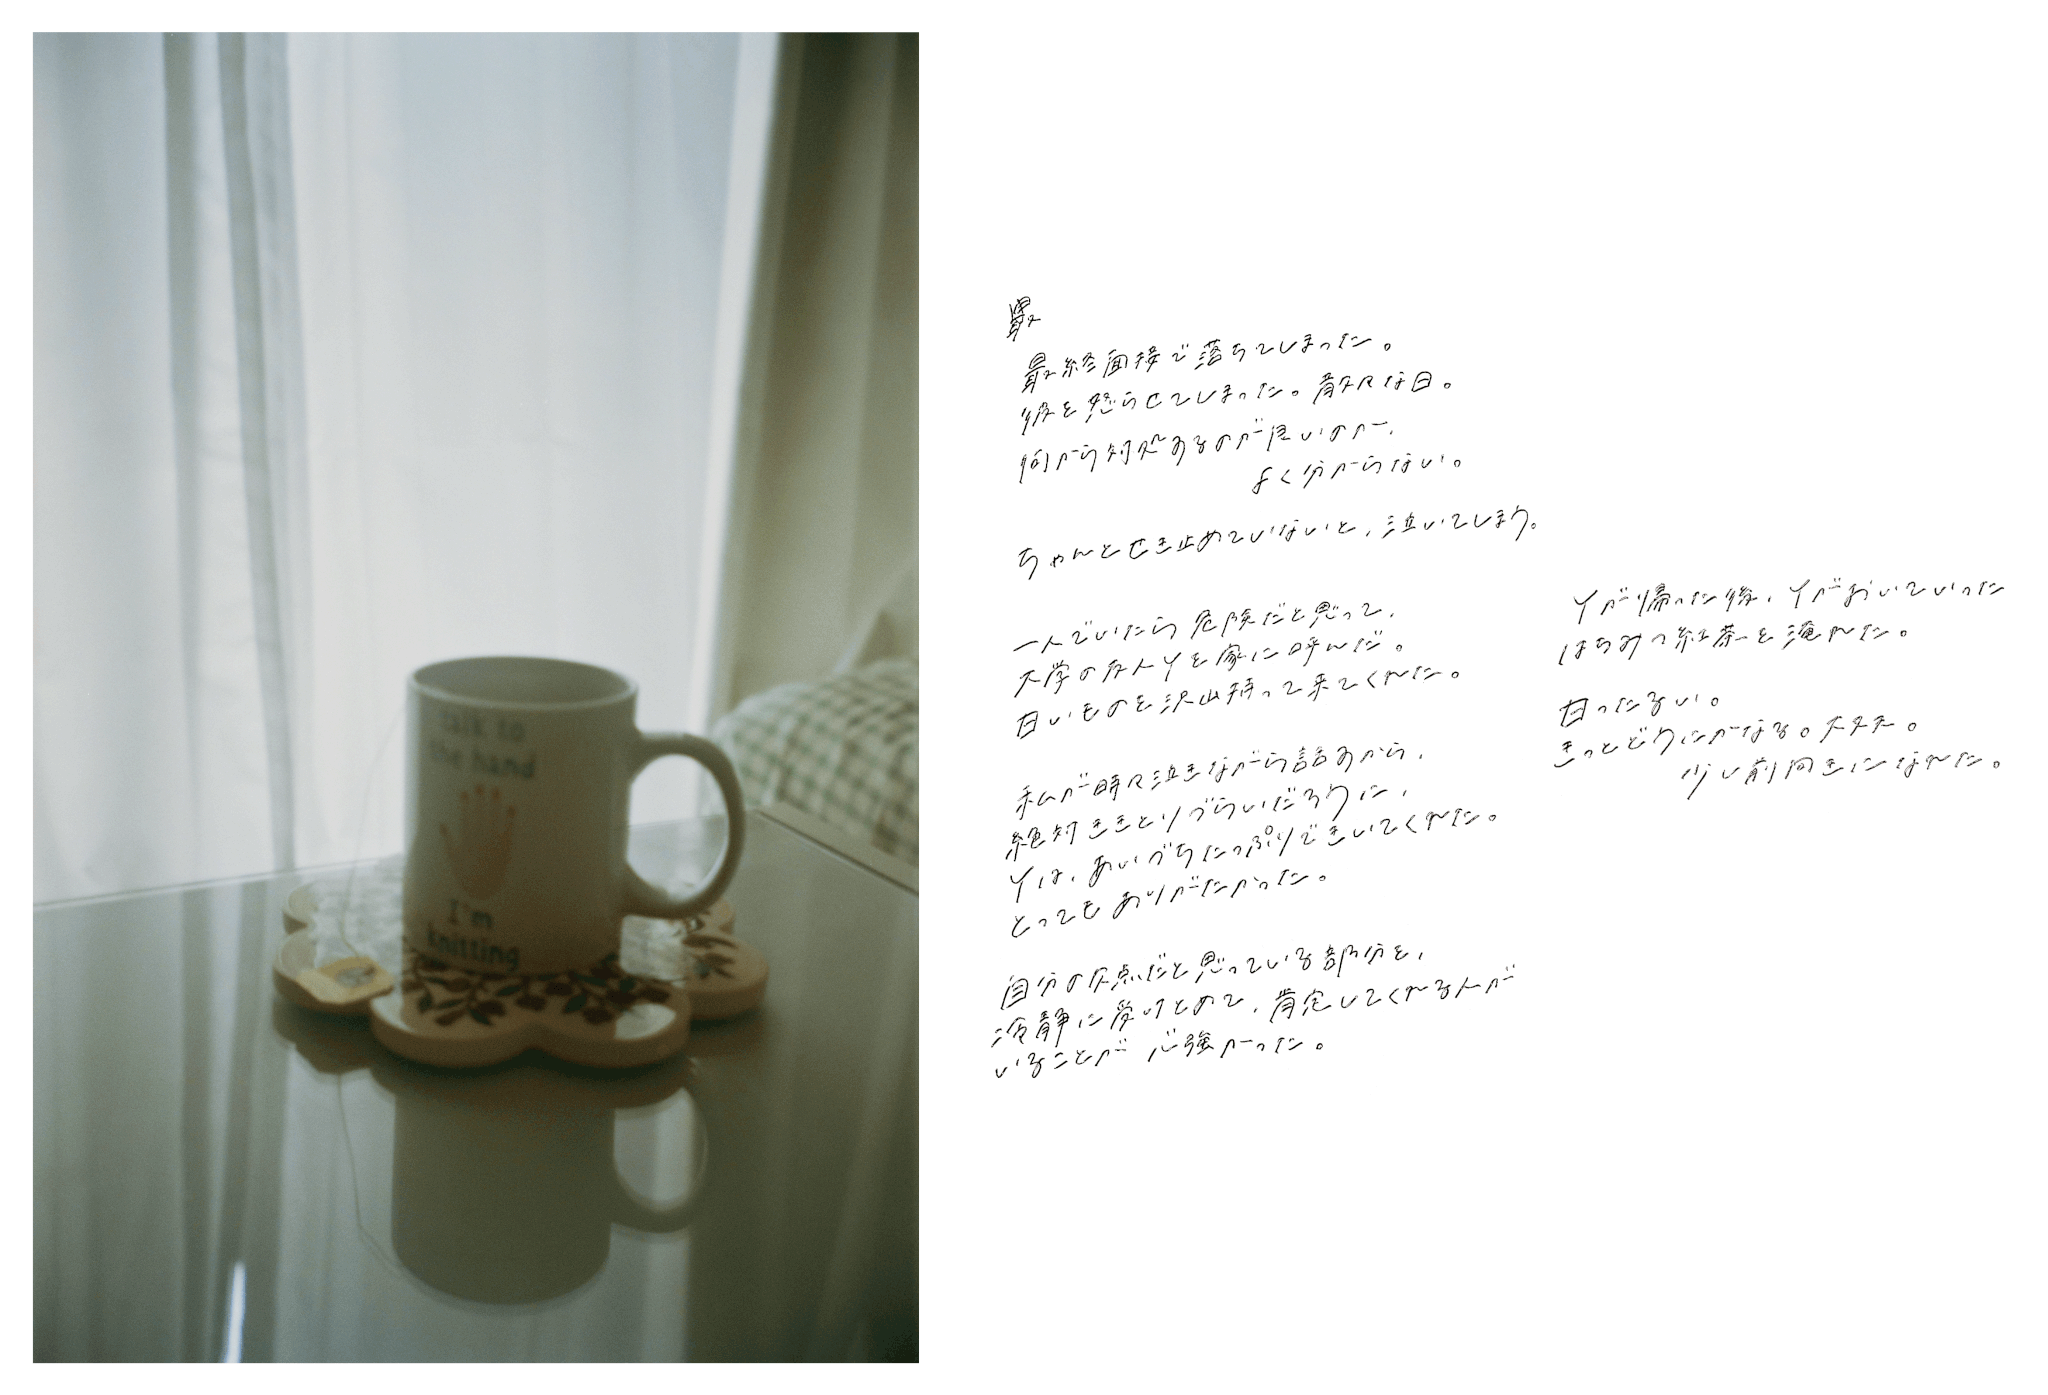 talk to
the hand
I'm
knitting
最
最終面接で落ちてしまった。
彼を怒らせてしまった。散々な日。
何から対処するのが良いのか、
よく分からない。
ちゃんとせき止めていないと、泣いてしまう。
一人でいたら危険だと思って、
大学の友人Yを家に呼んだ。
甘いものを沢山持って来てくれた。
私が時々泣きながら話すから、
絶対ききとりづらいだろうに、
Yは、あいづちたっぷりできいてくれた。
とってもありがたかった。
自分の欠点だと思っている部分を、
冷静に受けとめて、肯定してくれる人が
いることが心強かった。
Yが帰った後、Yがおいていった
はちみつ紅茶を淹れた。
甘ったるい。
きっとどうにかなる。大丈夫。
少し前向きになれた。